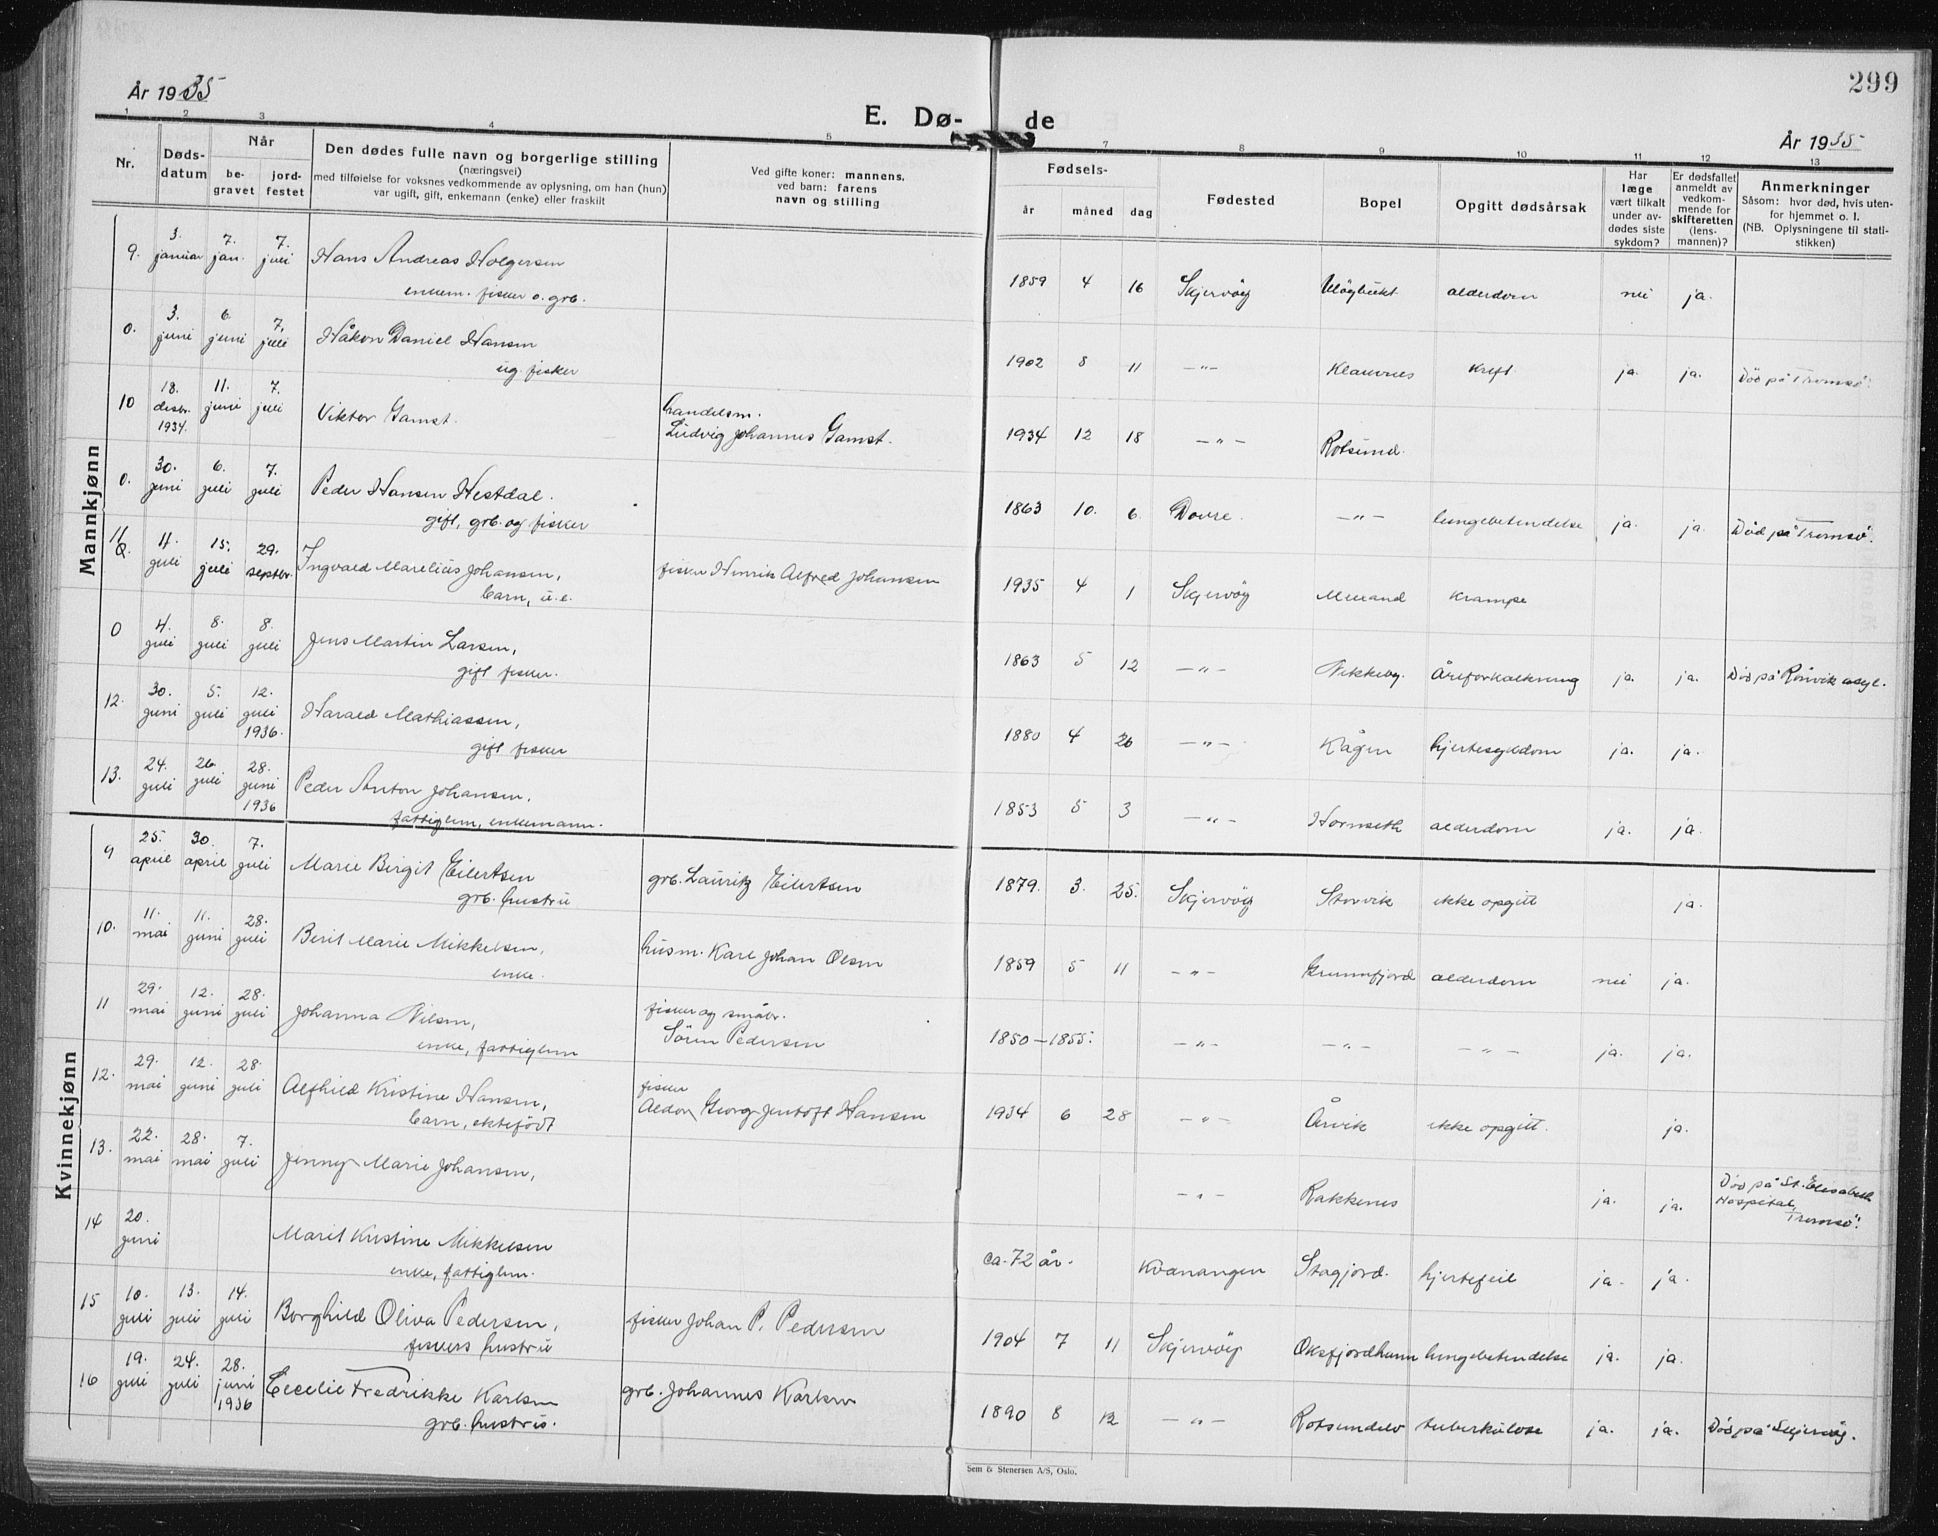 299
År 1935
E. Dø-
de
År 1935
1 2 3 4 5 7 8 9 10 11 12 13
Nr.
Døds-
datum
Når
be-
gravet
jord-
festet
Den dødes fulle navn og borgerlige stilling
(næringsvei)
med tilføielse for voksnes vedkommende av oplysning, om han (hun)
var ugift, gift, enkemann (enke) eller fraskilt
Ved gifte koner: mannens,
ved barn: farens
navn og stilling
Fødsels-
år måned dag
Fødested
Bopel
Opgitt dødsårsak
Har
læge
vært tilkalt
under av-
dødes siste
sykdom?
Er dødsfallet
anmeldt av
vedkom-
mende for
skifteretten
(lens-
mannen)?
Anmerkninger
Såsom: hvor død, hvis uten-
for hjemmet o. l.
(NB. Oplysningene til stati-
stikken)
Mannkjønn
9. 3. januar 7. jan. 7. juli Hans Andreas Holgersen
enkem. fisker o. grb.
1859 4 16 Skjervøy Uløybukt alderdom nei ja.
0. 3. juni 6. juni 7. juli Håkon Daniel Hansen
ug. fisker
1902 8 11 -"- Klauvnes kreft ja. ja. Död på Tromsö.
10 18. desbr. 1934. 11. juni 7. juli Viktor Gamst. handelsm.
Ludvig Johannes Gamst.
1934 12 18 -"- Rotsund.
0. 30. juni 6. juli 7. juli Peder Hansen Hestdal.
gift, grb. og fisker
1863 10. 6. Dovre. -"- lungebetendelse ja. ja. Död på Tromsö.
11 4. juli 15. juli 29. septbr. Ingvald Marelius Johansen, fisker Henrik Alfred Johansen
barn, u.e.
1935 4 1 Skjervöy krampe
0 4. juli 8. juli 8. juli Jens Martin Larsen,
gift fisker.
1863 5 12 -"- Nikkeby. Åreforkalkning ja. ja. Död på Rönvik asyl.
12. 30. juni 5. juli 12. juli 1936. Harald Mathiassen,
gift fisker
1880 4 26 -"- Kågen hjertesykdom ja. ja.
13. 24. juli 26 juli 28. juni 1936 Peder Anton Johansen,
fattiglem, enkemann.
1853 5 3 -"- Hamneth alderdom ja. ja.
Kvinnekjønn
9 25. april 30. april 7. juli Marie Birgit Eilertsen grb. Lauritz Eilertsen
grb. hustru
1879. 3. 25. Skjervöy Storvik ikke opgitt ja.
10. 11. mai 11. juni 28. juli Berit Marie Mikkelsen, husm. Karl Johan Olsen
enke.
1859 5 11 -"- Grunnfjord alderdom nei ja.
11 29. mai 12. juni 28. juli Johanna Nilsen, fisker og småbr.
enke, fattiglem Sören Pedersen
1850-1855. -"- -"- -"- ja. ja.
12. 29. mai 12. juni 28. juli Alfhild Kristine Hansen, fisker
barn, ektefödt Aldor Georg Jentoft Hansen
1934 6 28 -"- Årvik ikke opgitt. ja.
13. 22. mai 28. mai 7. juli Jenny Marie Johansen,
-"- Rakkenes ja. ja. Död på St. Elisabeth
Hospital,
Tromsö.
14 20. juni Marit Kristine Mikkelsen
enke, fattiglem.
ca. 72 år. Kvænangen Stagjord. hjertefeil ja. ja.
15 10. juli 13. juli 14. juli Borghild Oliva Pedersen, fisker Johan P. Pedersen
fiskers hustru
1904 7 11 Skjervöy Oksfjordhamn lungebetendelse ja. ja.
16 19. juli 24. juli 28. juni 1936 Cecelie Fredrikke Karlsen grb. Johannes Karlsen
grb. hustru.
1890 8 12 -"- Rotsundelv tuberkulose ja. ja. Död på Skjervöy.
Sem & Stenersen A/S, Oslo.